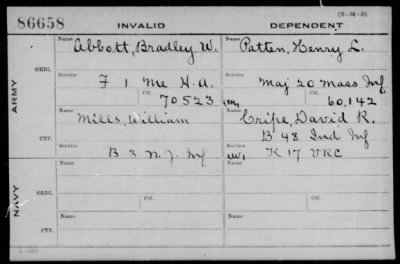 86658 INVALID DEPENDENT (3-36-3)
ARMY ORIG.
Name Abbott, Bradley W.
Service F 1 Me H.A.
Ctf. 70523
Name Patten, Henry L.
Service Maj 20 Mass Inf
(M) Ctf. 60,142
CTF.
Name Mills, William
Service B 3 N.J. Inf
Name Cripe, David R.
B 48 Ind Inf
Service (W) K 17 VRC
NAVY ORIG.
Name
Service Ctf.
Name
Service Ctf.
CTF.
Name
Service
Name
Service